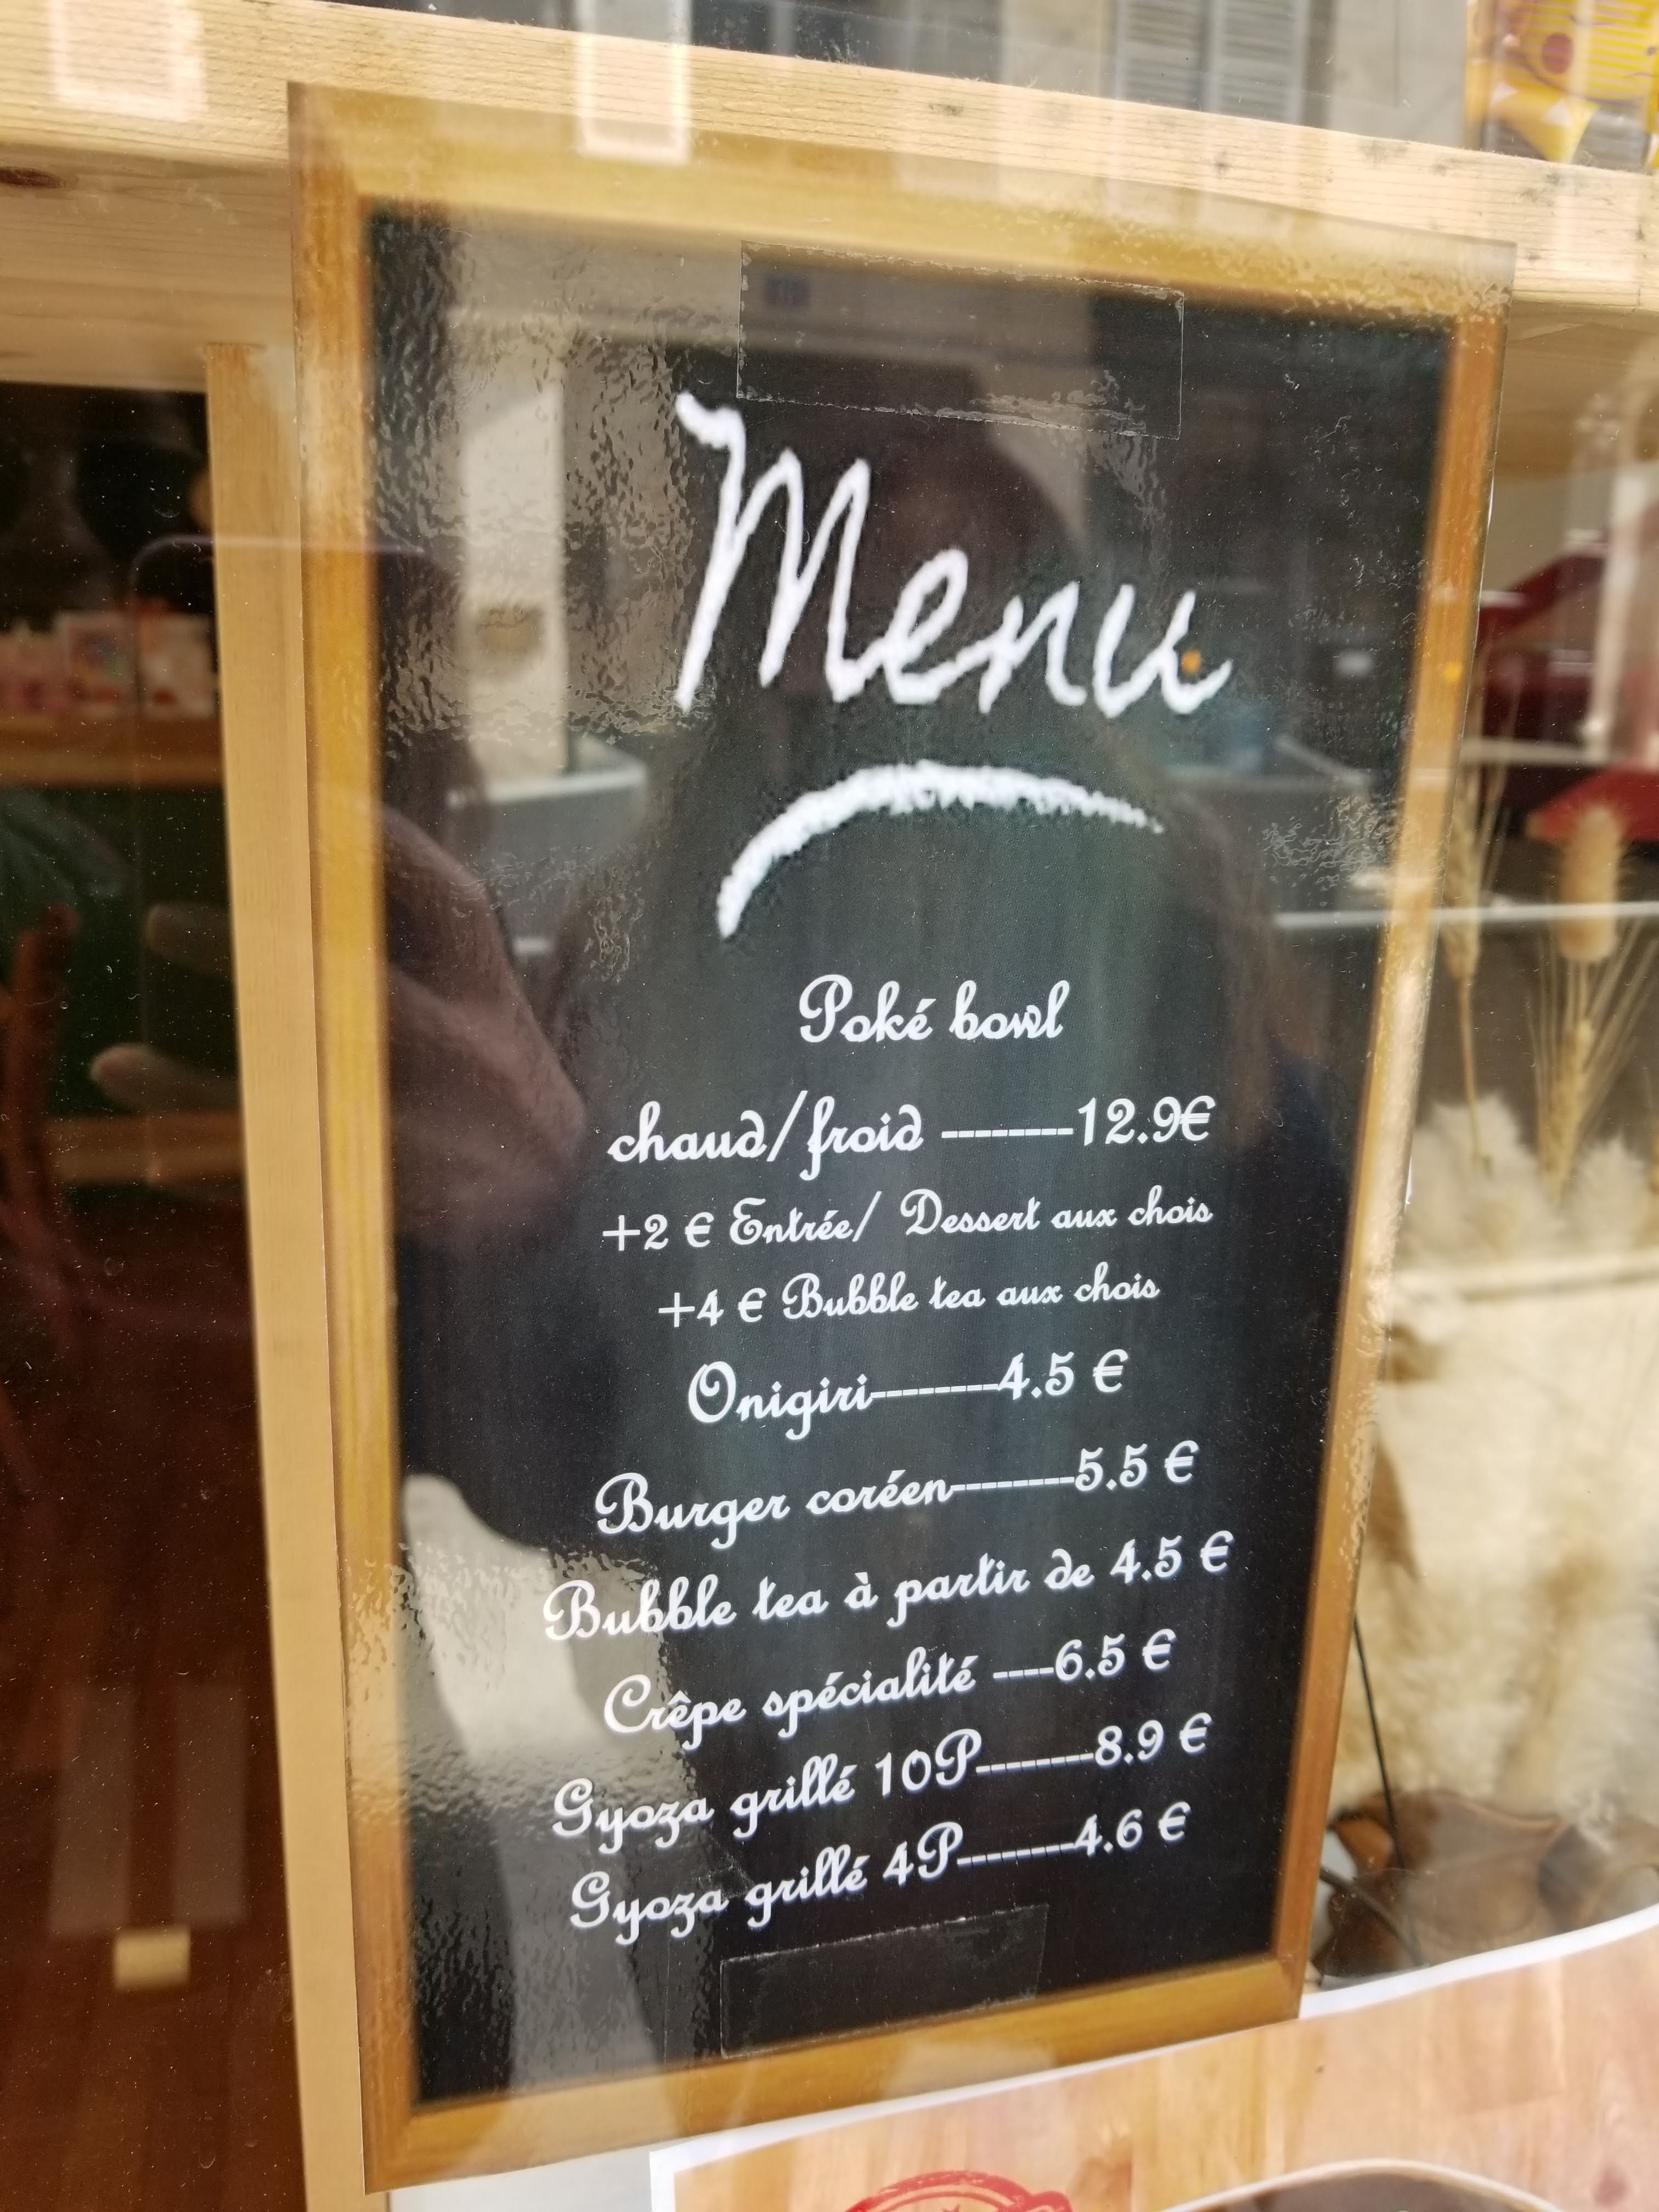 Menu
Poké bowl
chaud/froid --------12.9€
+2 € Entrée/ Dessert aux chois
+4 € Bubble tea aux chois
Onigiri--------4.5 €
Burger coréen--------5.5 €
Bubble tea à partir de 4.5 €
Crêpe spécialité ----6.5 €
Gyoza grillé 10P--------8.9 €
Gyoza grillé 4P--------4.6 €